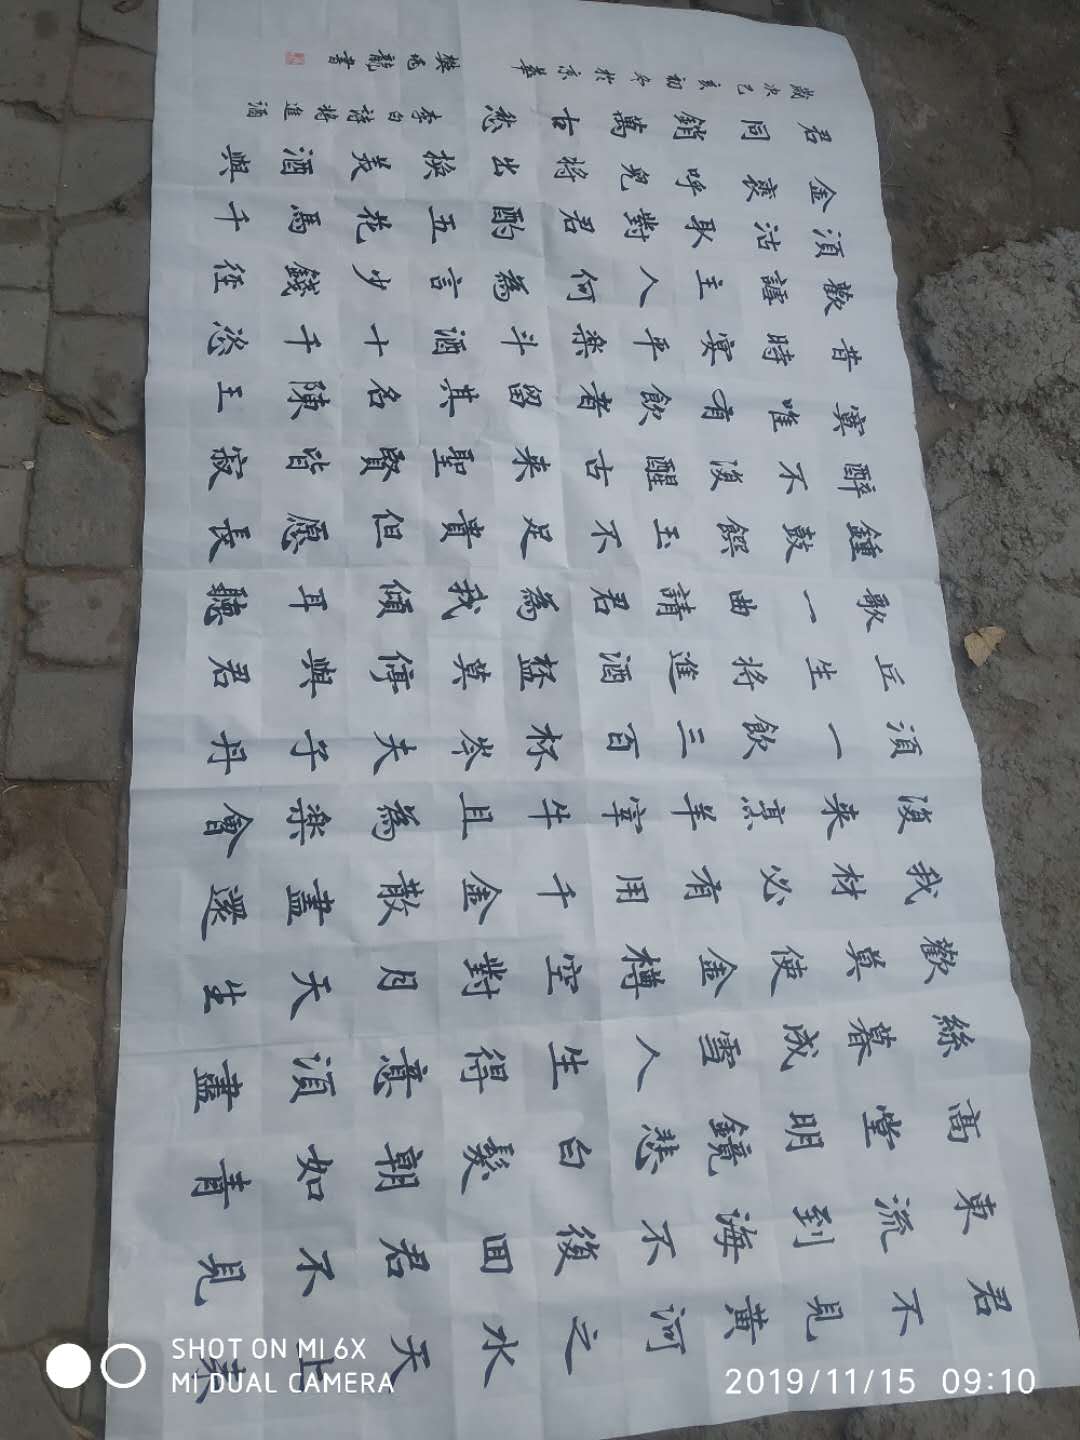 君不見黃河之水天上來
東流到海不復回君不見
高堂明鏡悲白髮朝如青
絲暮成雪人生得意須盡
歡莫使金樽空對月天生
我材必有用千金散盡還
復来烹羊宰牛且為樂會
須一飲三百杯岑夫子丹
丘生將進酒盃莫停與君
歌一曲請君為我傾耳聽
鍾鼓饌玉不足貴但愿長
醉不復醒古来聖賢皆寂
寞唯有飲者留其名陳王
昔時宴平樂斗酒十千恣
歡謔主人何為言少錢徑
須沽取對君酌五花馬千
金裘呼兒將出換美酒與
君同銷萬古愁 李白詩將進酒
歲次己亥初冬於京華 樊龍書
SHOT ON MI 6X
MI DUAL CAMERA
2019/11/15 09:10